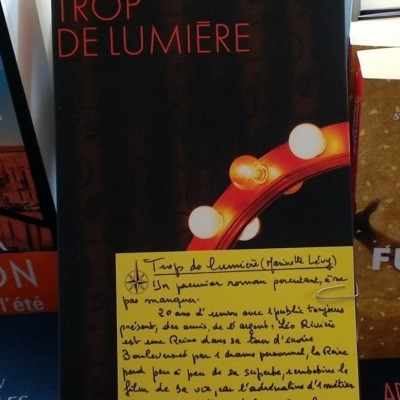 TROP
DE LUMIÈRE
Trop de lumière (Marinette Lévy)
Un premier roman percutant, à ne
pas manquer.
20 ans d'union avec 1 public toujours
présent, des amis, de l'argent : Léo Rivière
est une Reine dans sa tour d'ivoire
Bouleversée par 1 drame personnel, la Reine
perd peu à peu de sa superbe, rembobine le
film de sa vie, car l'adrénaline d'1 métier
ON
l'été
FU